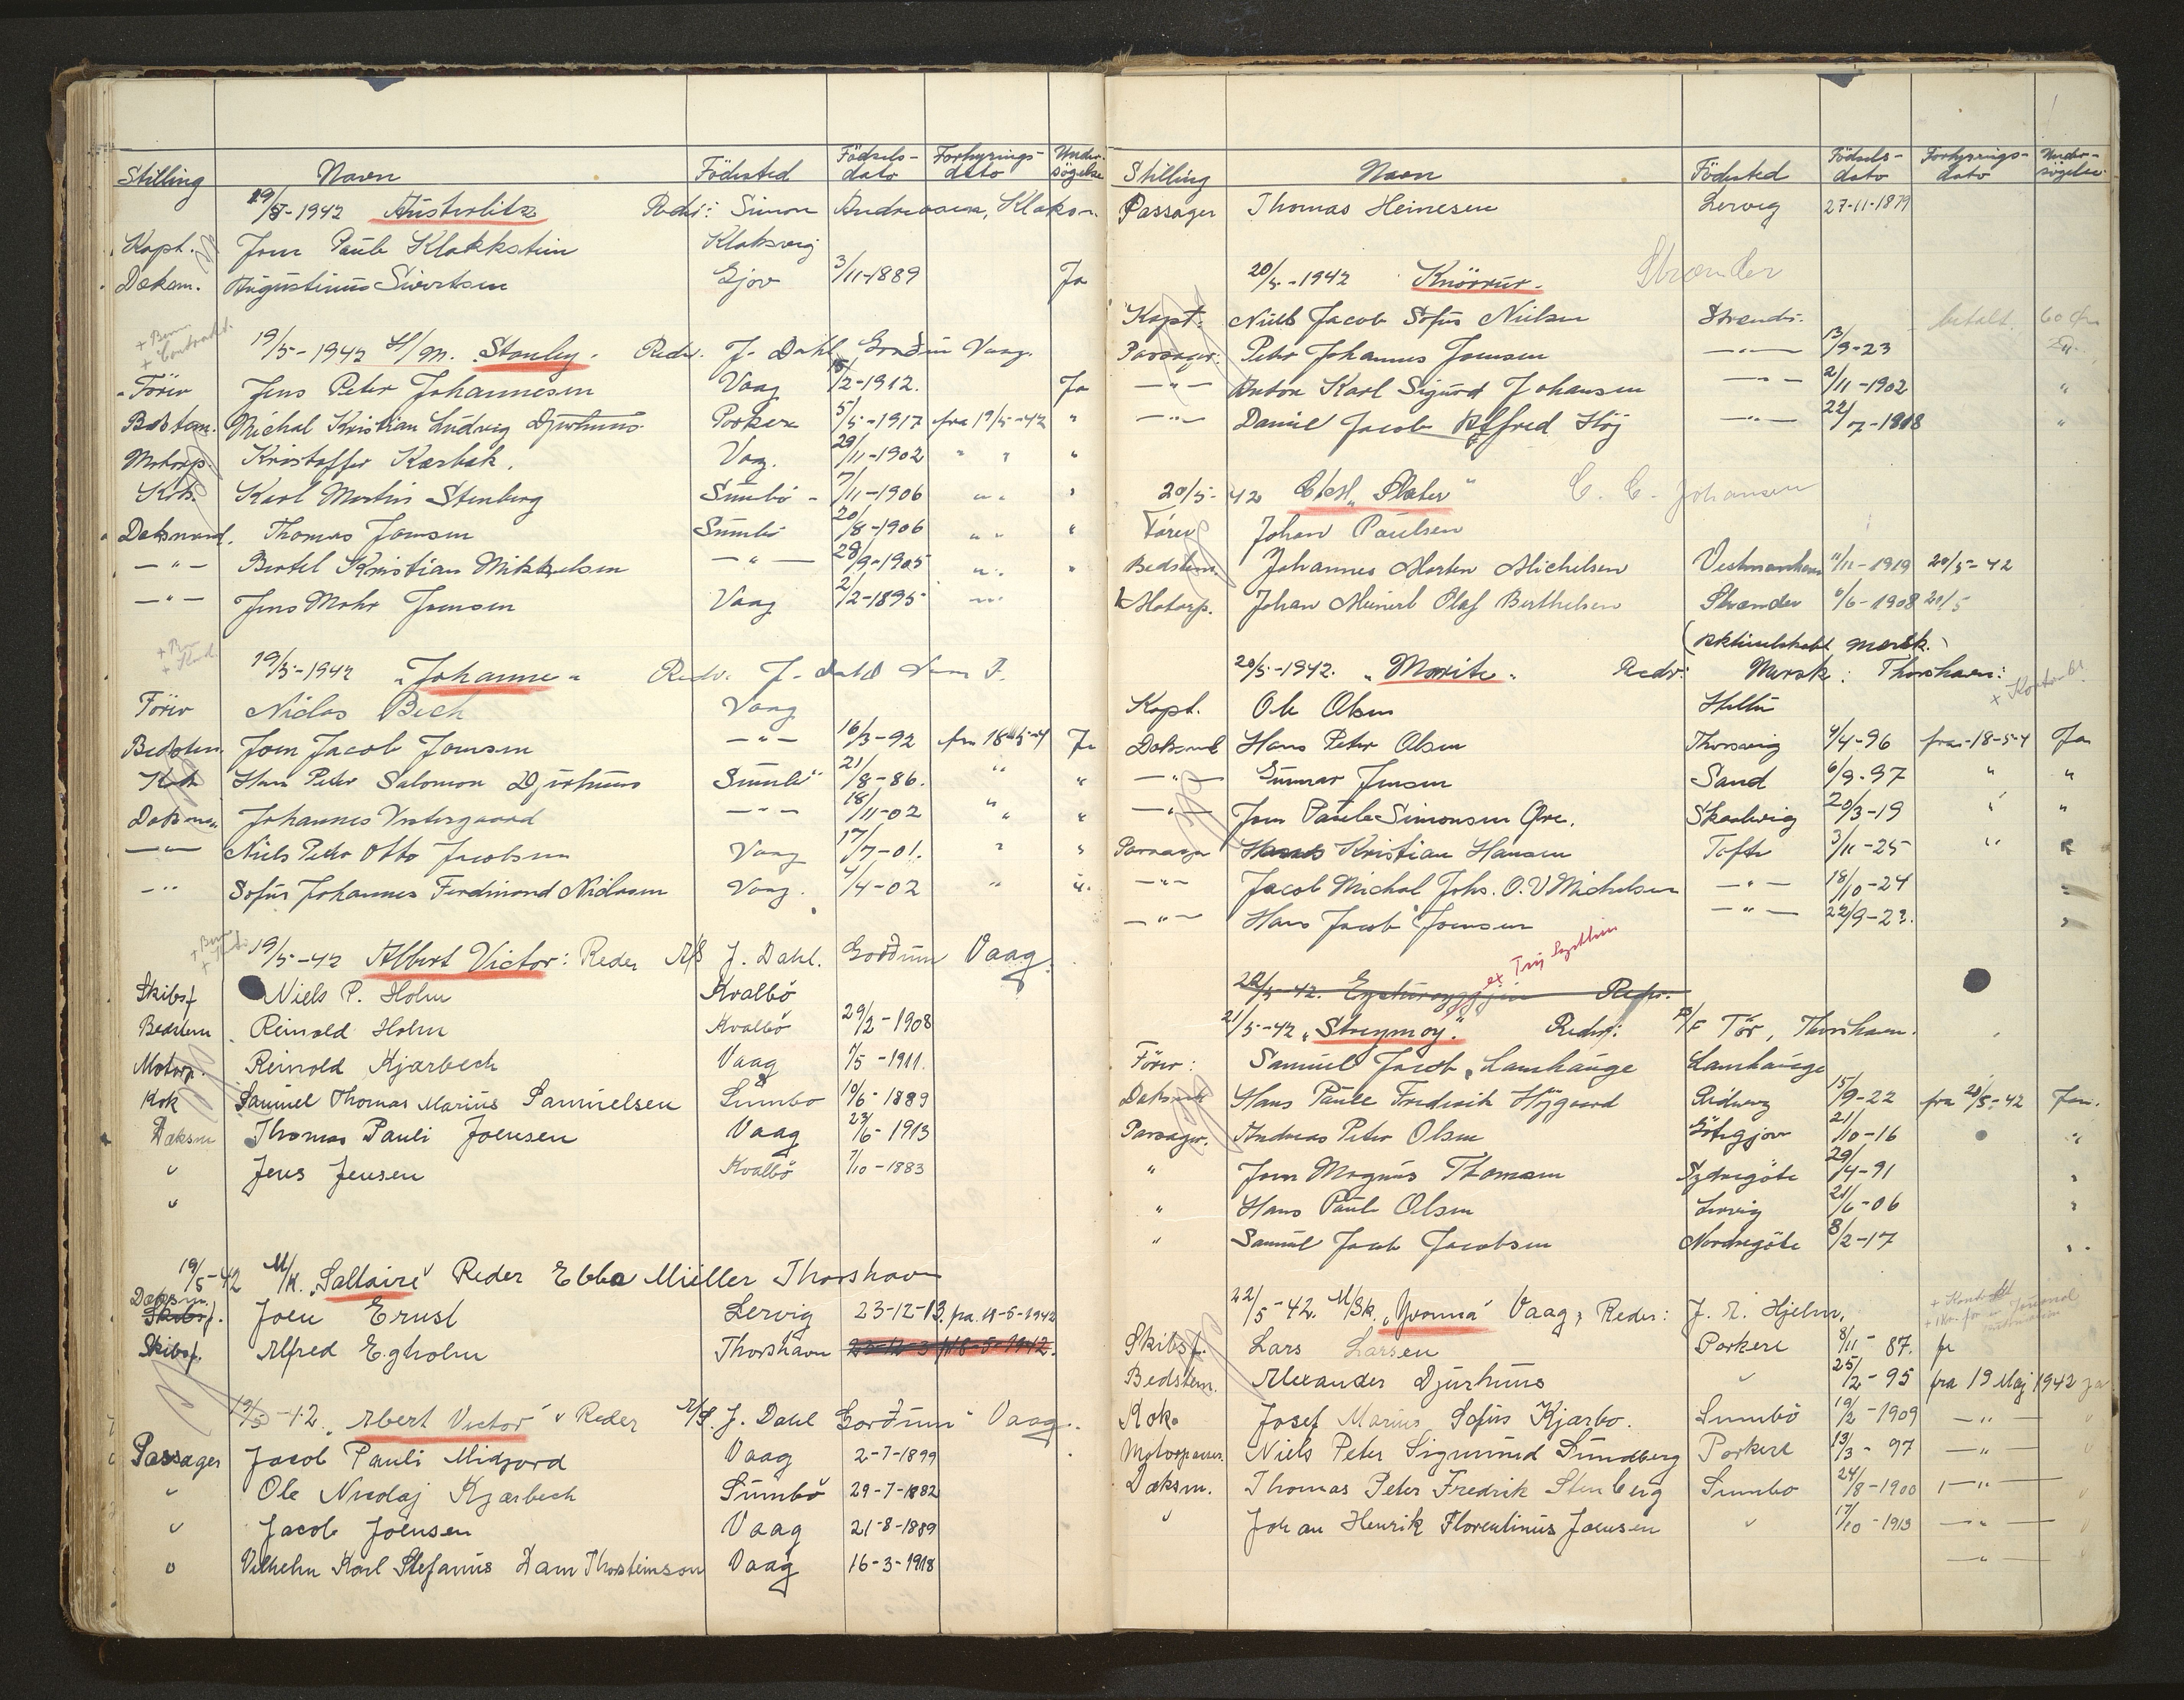 Stilling Navn Födested Födsels-dato Forhyrings-dato Under-søgelse
19/5-1942 Austerlitz Reder: Simon Andreasen, Klaksv.
Kapt. Joen Paule Klakkstein Klaksvig
Dæksm. Augustinus Sivertsen Gjov 3/11-1889 Ja
+ Bem.
+ Contrakt.
19/5-1942 S/M. Stanley. Reder. J. Dahl, Gordin Vaag.
Förer Jens Peter Johannesen Vaag /2-1912. Ja
Bedstem. Michal Kristian Ludvig Djurhuus Porkere 5/5-1917 fra 19/5-42 "
Motorp. Kristoffer Kærbæk. Vaag. 29/11-1902 " " "
Kok. Karl Martin Stenberg Sumbö 7/11-1906 " " "
Dæksmand. Thomas Joensen Sumbö 20/8-1906 " " "
— " — Bertel Kristian Mikkelsen — " — 28/9-1905 " "
— " — Jens Mohr Joensen Vaag 2/2-1895 "
19/5-1942 "Johanne" Reder. J. Dahl
Förer Niclas Bech Vaag
Bedstem. Joen Jacob Joensen — " — 16/3-92 fra 18-5-4 Ja
Kok Hans Peter Salomon Djurhuus Sumbö 21/8-86. " "
Dæksman Johannes Vestergaard — " — 18/11-02 " "
— " — Niels Peter Otto Jacobsen Vaag 17/7-01. " "
— " Sofus Johannes Ferdinand Niclasen Vaag. 4/4-02 " "
19/5-42 Albert Victor: Reder A/S J. Dahl. Gordum Vaag.
Skibsf Niels P. Holm Kvalbö
Bedstem. Reinold Holm Kvalbö 29/2-1908
Motorp. Reinold Kjærbech Vaag 1/5-1911.
Kok Samuel Thomas Marius Samuelsen Sumbö 19/6-1889
Dæksm Thomas Pauli Joensen Vaag 23/6-1913
" Jens Jensen Kvalbö 7/10-1883
"
19/5-42 M/K. "Saltaire" Reder Ebba Müller Thorshavn
Dæksm. Skibsf. Joen Ernst Lervig 23-12-13. fra. 19-5-1942
Skibsf. Alfred Egholm Thorshavn
19/5-42. "Albert Victor" Reder A/S. J. Dahl Gordum Vaag.
Passager Jacob Pauli Midjord Vaag 2-7-1899
" Ole Nicolaj Kjærbech Sumbö 29-7-1882
" Jacob Joensen Vaag 21-8-1889
" Vilhelm Karl Stefanus Dam Thorsteinsson Vaag 16-3-1918
Stilling Navn Födested Födsels-dato Forhyrings-dato Under-søgelse
Passager Thomas Heinesen Lervig 27-11-1879
20/5-1942 Knörrur. Strænder
Kapt. Niels Jacob Sofus Nielsen Strendr. betalt. 60 öre
Passager: Peter Johannes Joensen — " — 13/9-23
— " — Anton Karl Sigurd Johansen — " — 2/11-1902 "
— " — Daniel Jacob Alfred Höj — " — 22/7-1908 "
20/5-42 "Slater" C. C. Johansen
Förer Johan Paulsen
Bedstem. Johannes Morten Michelsen Vestmanhavn /11-1919 20/5-42
Motorp. Johan Meinert Olaf Berthelsen Strænder 6/6-1908 20/5
(Aktieselskabet Marsk.)
20/5-1942. "Marite" Reder: Marsk: Thorshavn:
Kapt. Ole Olsen
Dæksmd Hans Peter Olsen Thorsvig 4/4-96 fra-18-5-4 Ja
— " — Gunnar Jensen Sand 6/9-97 " "
— " — Joen Paule Simonsen Øre. Skaalevig 20/3-19 " "
Passager Hans Kristian Hansen Tofte 3/11-25 "
— " — Jacob Michal Johs. O. V Michelsen — " — 18/10-24 "
— " — Hans Jacob Joensen — " — 22/9-23. "
20/5-42. Reder.
21/5-42 "Streymoy." Reder: P/F Tór, Thorshavn.
Förer: Samuel Jacob Lamhauge Lamhauge
Dæksmd Hans Paule Frederik Höjgaard Ridevig 15/9-22 fra 20/5-42 Ja.
Passager. Andreas Peter Olsen Götegjov 21/10-16 "
" Joen Magnus Thomsen Sydregöte 29/4-91 "
" Hans Paule Olsen Lervig 21/6-06 "
" Samuel Jacob Jacobsen Nordregöte 8/2-17 "
22/5-42. M/Sk. "Yvonna" Vaag, Reder: J. M. Hjelm.
Skibsf. Lars Larsen Porkere 8/11-87. fr
Bedstem. Alexander Djurhuus " 25/2-95 fra 19 Maj 1942 ja
Kok. Josef Marius Sofus Kjærbo. Sumbö 19/2-1909 — " — "
Motorpasser. Niels Peter Sigmund Sundberg Porkere 13/3-97 — " — "
Dæksm. Thomas Peter Fredrik Stenberg Sumbo 24/8-1900 — " — "
" Johan Henrik Florentinus Joensen " 17/10-1913 — " — "
— " — "